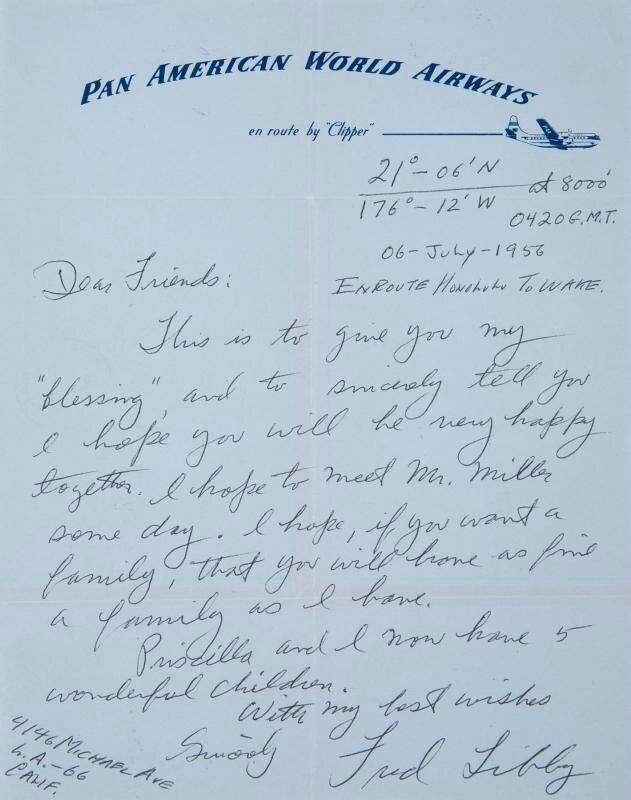 PAN AMERICAN WORLD AIRWAYS
en route by "Clipper"
21° - 06' N
176° - 12' W
at 8000'
0420 G.M.T.
06 - July - 1956
ENROUTE HONOLULU TO WAKE.
Dear Friends:
This is to give you my
"blessing", and to sincerely tell you
I hope you will be very happy
together. I hope to meet Mr. Miller
some day. I hope, if you want a
family, that you will have as fine
a family as I have.
Priscilla and I now have 5
wonderful children.
With my best wishes
Fred Libby
4146 MICHAEL AVE
L.A. - 66
CALIF.